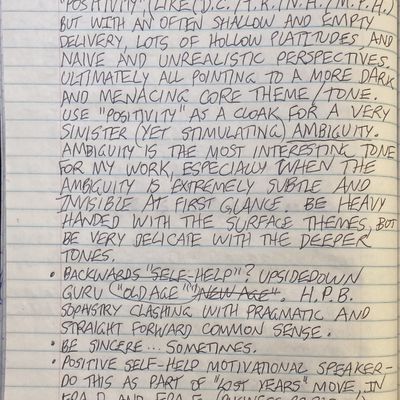 "POSITIVITY" (LIKE D.C./T.R./N.H./M.P.H.)
BUT WITH AN OFTEN SHALLOW AND EMPTY
DELIVERY, LOTS OF HOLLOW PLATITUDES, AND
NAIVE AND UNREALISTIC PERSPECTIVES.
ULTIMATELY ALL POINTING TO A MORE DARK
AND MENACING CORE THEME/TONE.
USE "POSITIVITY" AS A CLOAK FOR A VERY
SINISTER (YET STIMULATING) AMBIGUITY.
AMBIGUITY IS THE MOST INTERESTING TONE
FOR MY WORK, ESPECIALLY WHEN THE
AMBIGUITY IS EXTREMELY SUBTLE AND
INVISIBLE AT FIRST GLANCE. BE HEAVY
HANDED WITH THE SURFACE THEMES, BUT
BE VERY DELICATE WITH THE DEEPER
TONES.
• BACKWARDS "SELF-HELP"? UPSIDEDOWN
GURU ("OLD AGE") "NEW AGE". H.P.B.
SOPHISTRY CLASHING WITH PRAGMATIC AND
STRAIGHT FORWARD COMMON SENSE.
• BE SINCERE... SOMETIMES.
• POSITIVE SELF-HELP MOTIVATIONAL SPEAKER-
DO THIS AS PART OF "LOST YEARS" MOVE, IN